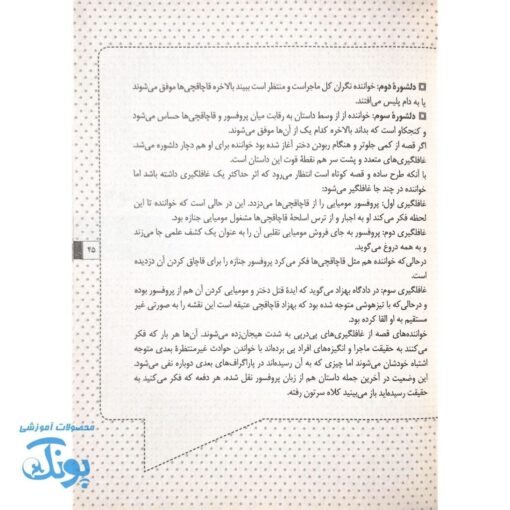 دلشورهٔ دوم: خواننده نگران کل ماجراست و منتظر است ببیند بالاخره قاچاقچی‌ها موفق می‌شوند
یا به دام پلیس می‌افتند.
دلشورهٔ سوم: خواننده از از وسط داستان به رقابت میان پروفسور و قاچاقچی‌ها حساس می‌شود
و کنجکاو است که بداند بالاخره کدام یک از آن‌ها موفق می‌شوند.
اگر قصه از کمی جلوتر و هنگام ربودن دختر آغاز شده بود خواننده برای او هم دچار دلشوره می‌شد.
غافلگیری‌های متعدد و پشت سر هم نقطهٔ قوت این داستان است.
با آنکه طرح ساده و قصه کوتاه است انتظار می‌رود که اثر حداکثر یک غافلگیری داشته باشد اما
خواننده در چند جا غافلگیر می‌شود:
غافلگیری اول: پروفسور مومیایی را از قاچاقچی‌ها می‌دزدد. این در حالی است که خواننده تا این
لحظه فکر می‌کند او به اجبار و از ترس اسلحهٔ قاچاقچی‌ها مشغول مومیایی جنازه بود.
غافلگیری دوم: پروفسور به جای فروش مومیایی نقلبی آن را به عنوان یک کشف علمی جا می‌زند
و به همه دروغ می‌گوید.
درحالی‌که خواننده هم مثل قاچاقچی‌ها فکر می‌کرد پروفسور جنازه را برای قاچاق کردن آن دزدیده
است.
غافلگیری سوم: در دادگاه بهزاد می‌گوید که ایدهٔ قتل دختر و مومیایی کردن آن هم از پروفسور بوده
و درحالی‌که با تیزهوشی متوجه شده بود که بهزاد قاچاقچی عتیقه است این نقشه را به صورتی غیر
مستقیم به او القا کرده بود.
خواننده‌های قصه از غافلگیری‌های پی‌درپی به شدت هیجان‌زده می‌شوند. آن‌ها هر بار که فکر
می‌کنند به حقیقت ماجرا و انگیزه‌های افراد پی برده‌اند با خواندن حوادث غیرمنتظرهٔ بعدی متوجه
اشتباه خودشان می‌شوند اما چیزی که به آن رسیده‌اند در پاراگراف‌های بعدی دوباره نفی می‌شود.
این وضعیت در آخرین جمله داستان هم از زبان پروفسور نقل شده، هر دفعه که فکر می‌کنید به
حقیقت رسیده‌اید باز می‌بینید کلاه سرتون رفته.
۴۵
محصولات آموزشی
پونک